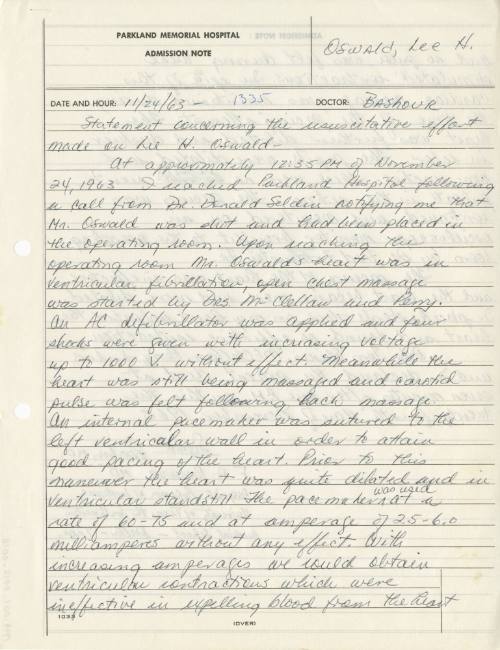 PARKLAND MEMORIAL HOSPITAL
ADMISSION NOTE
Oswald, Lee H.
DATE AND HOUR: 11/24/63 - 1335 DOCTOR: BASHOUR
Statement concerning the resuscitative effort
made on Lee H. Oswald-
At approximately 12:35 PM of November
24, 1963 I reached Parkland Hospital following
a call from Dr. Donald Seldin notifying me that
Mr. Oswald was shot and had been placed in
the operating room. Upon reaching the
operating room Mr. Oswald's heart was in
ventricular fibrillation, open chest massage
was started by Drs. McClelland and Perry.
An AC defibrillator was applied and four
shocks were given with increasing voltage
up to 1000 V. without effect. Meanwhile the
heart was still being massaged and carotid
pulse was felt following each massage.
An internal pacemaker was sutured to the
left ventricular wall in order to attain
good pacing of the heart. Prior to this
maneuver the heart was quite dilated and in
ventricular standstill. The pacemaker was used at a
rate of 60-75 and at amperage of 25-60
milliamperes without any effect. With
increasing amperages we could obtain
ventricular contractions which were
ineffective in expelling blood from the heart
1033
(OVER)